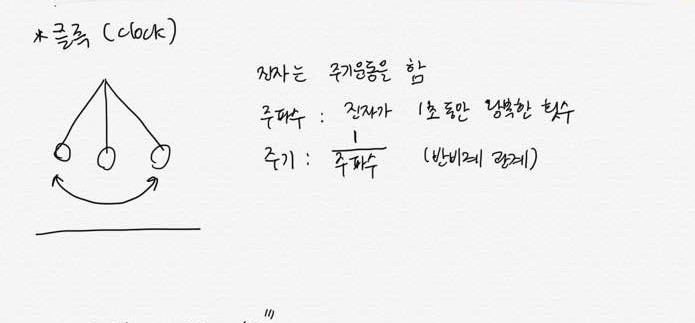 * 클록 (clock)
진자는 주기운동을 함
주파수 : 진자가 1초 동안 왕복한 횟수
주기 : 1/주파수 (반비례 관계)